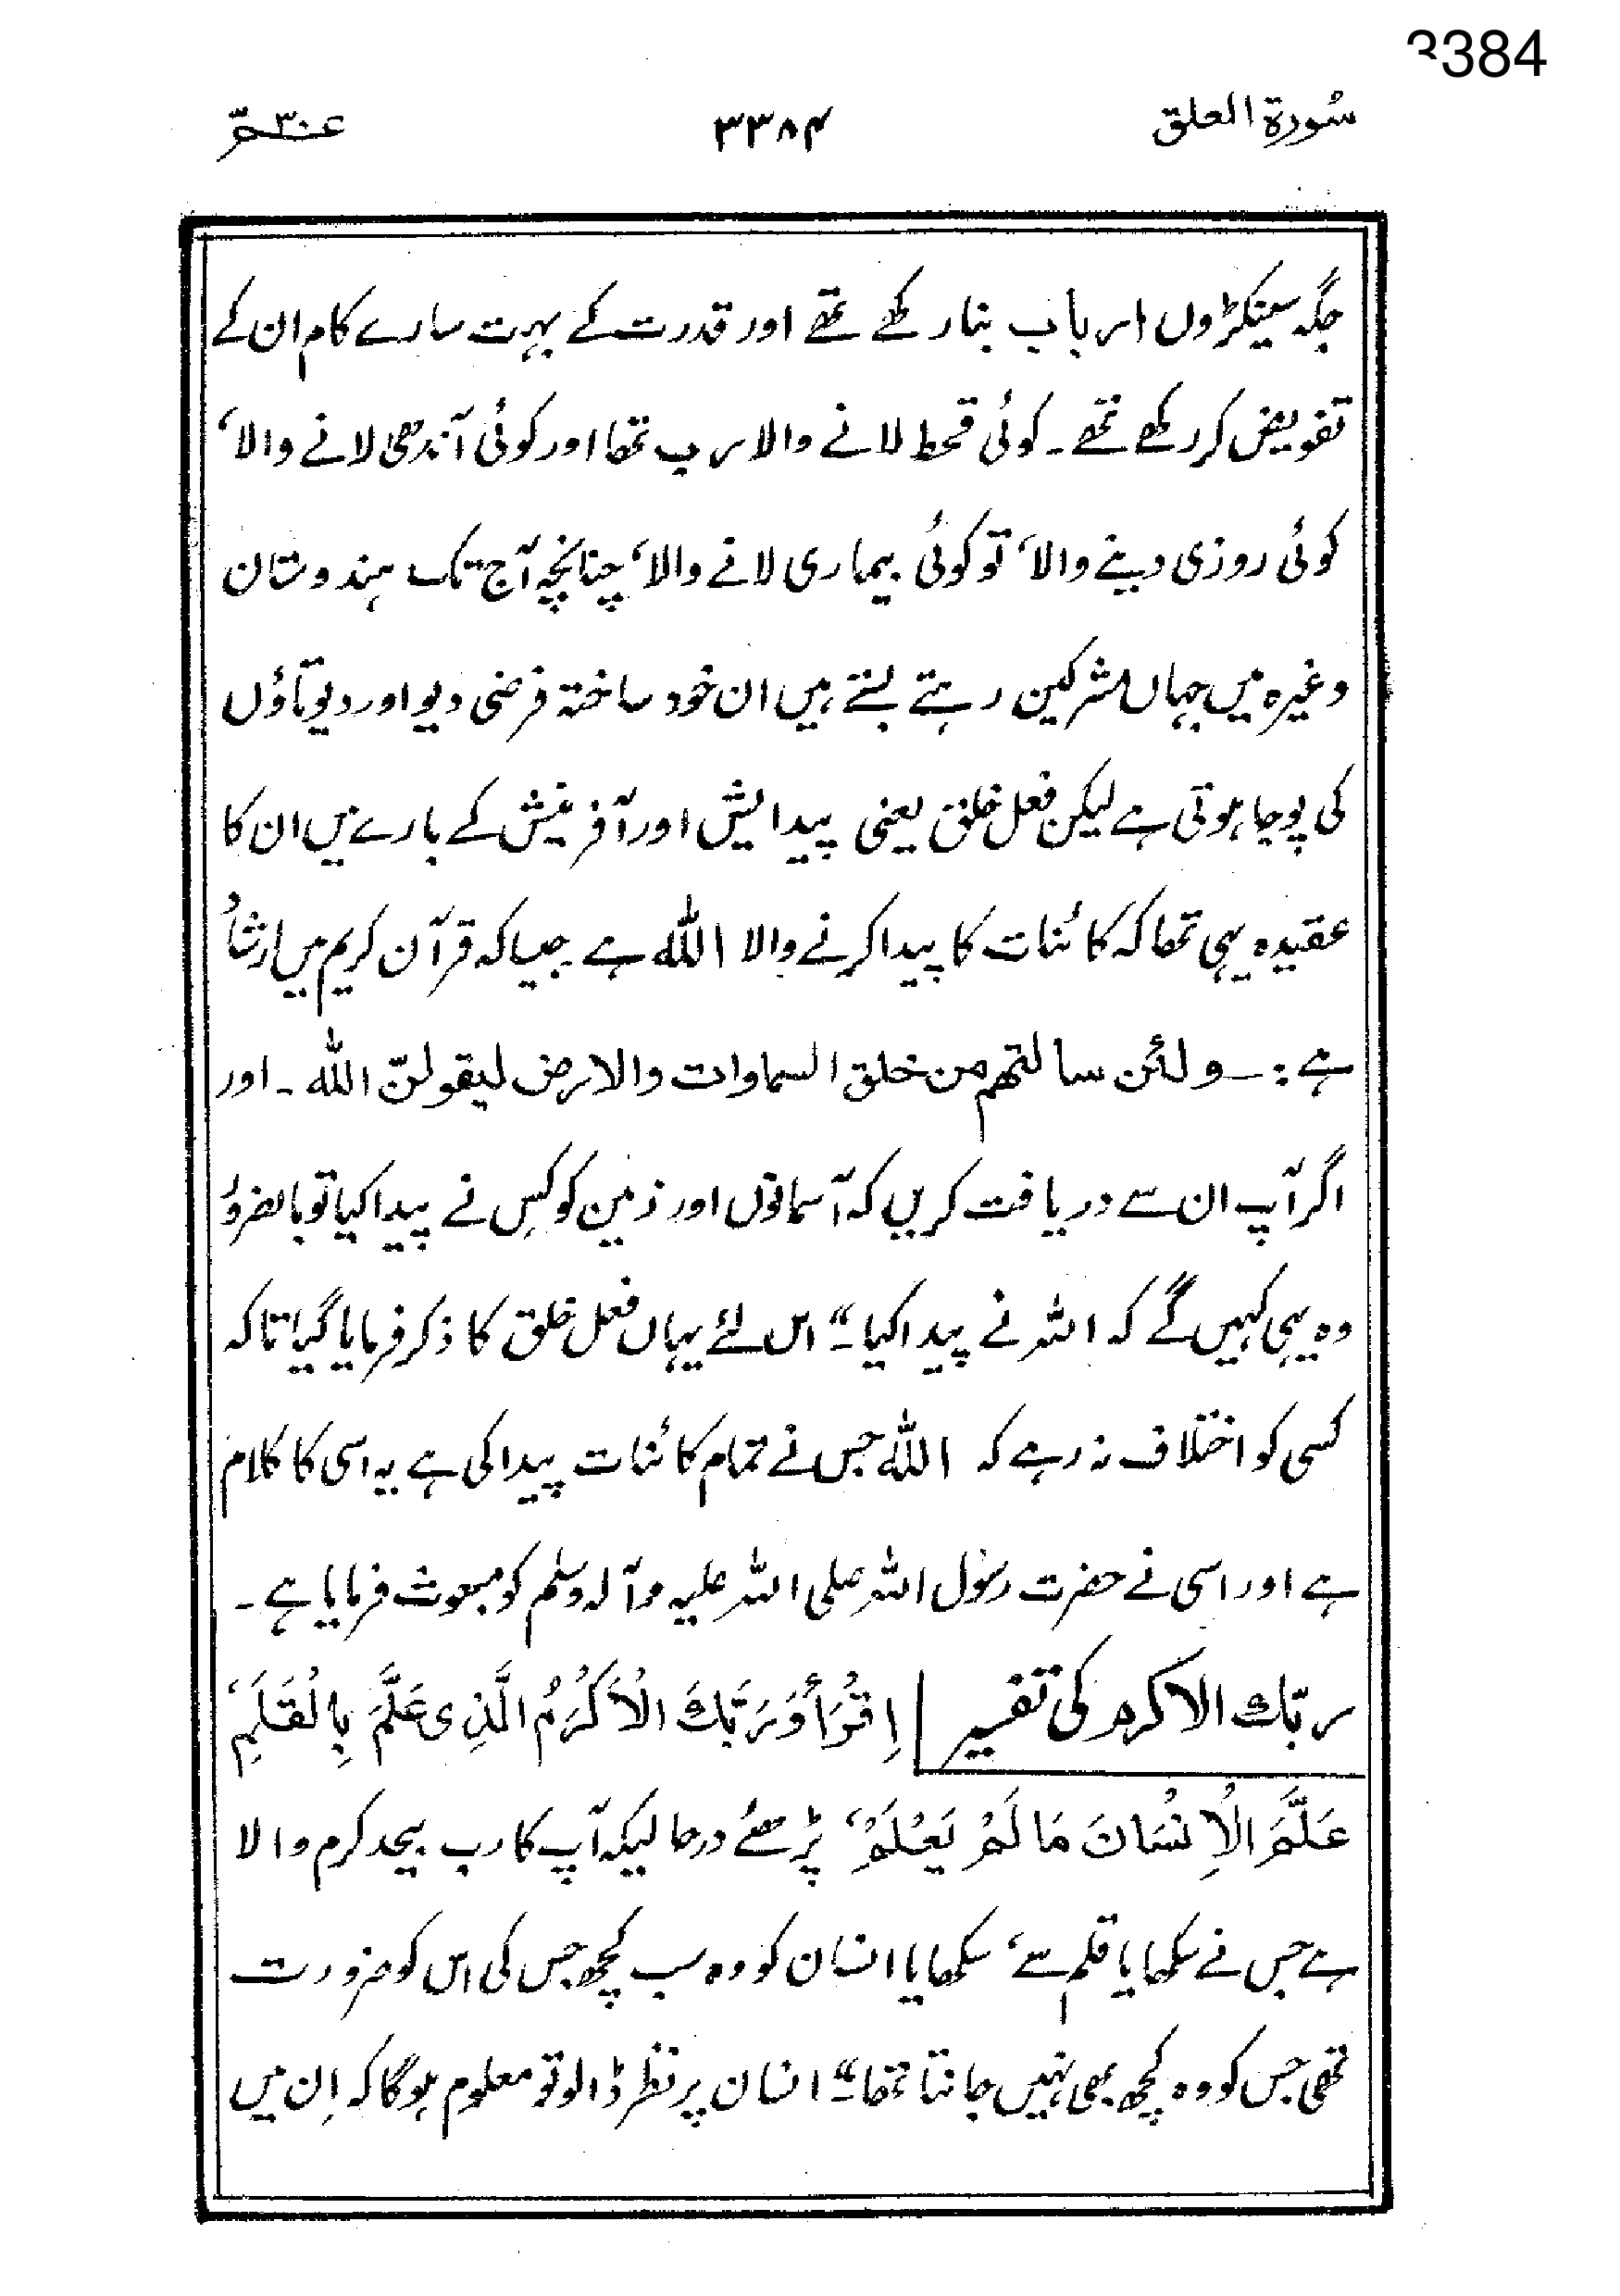 3384
سُورۃ العلق ۳۳۸۴ عم ۳۰
جگہ سینکڑوں ارباب بنا رکھے تھے اور قدرت کے بہت سارے کام ان کے
تفویض کر رکھے تھے۔ کوئی قحط لانے والا رب تھا اور کوئی آندھی لانے والا،
کوئی روزی دینے والا، تو کوئی بیماری لانے والا، چنانچہ آج تک ہندوستان
وغیرہ میں جہاں مشرکین رہتے بستے ہیں ان خود ساختہ فرضی دیو اور دیوتاؤں
کی پوجا ہوتی ہے لیکن فعل خلق یعنی پیدایش اور آفرینش کے بارے میں ان کا
عقیدہ یہی تھا کہ کائنات کا پیدا کرنے والا اللّٰہ ہے۔ جیسا کہ قرآن کریم میں ارشاد
ہے :۔ ولئن سالتھم من خلق السماوات والارض لیقولنّ اللّٰہ ۔ اور
اگر آپ ان سے دریافت کریں کہ آسمانوں اور زمین کو کس نے پیدا کیا تو بالضرور
وہ یہی کہیں گے کہ اللہ نے پیدا کیا۔“ اس لئے یہاں فعل خلق کا ذکر فرمایا گیا تاکہ
کسی کو اختلاف نہ رہے کہ اللّٰہ جس نے تمام کائنات پیدا کی ہے یہ اسی کا کلام
ہے اور اسی نے حضرت رسول اللہ صلی اللہ علیہ وآلہ وسلم کو مبعوث فرمایا ہے ۔
ربّک الاکرم کی تفسیر اِقْرَأْ وَرَبُّكَ الْاَكْرَمُ الَّذِی عَلَّمَ بِالْقَلَمِ،
عَلَّمَ الْاِنْسَانَ مَا لَمْ یَعْلَمْ، پڑھئے درحالیکہ آپ کا رب بیحد کرم والا
ہے جس نے سکھایا قلم سے، سکھایا انسان کو وہ سب کچھ جس کی اس کو ضرورت
تھی جس کو وہ کچھ بھی نہیں جانتا تھا۔“ انسان پر نظر ڈالو تو معلوم ہوگا کہ اِن میں